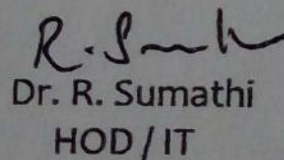 R. Sum
Dr. R. Sumathi
HOD / IT